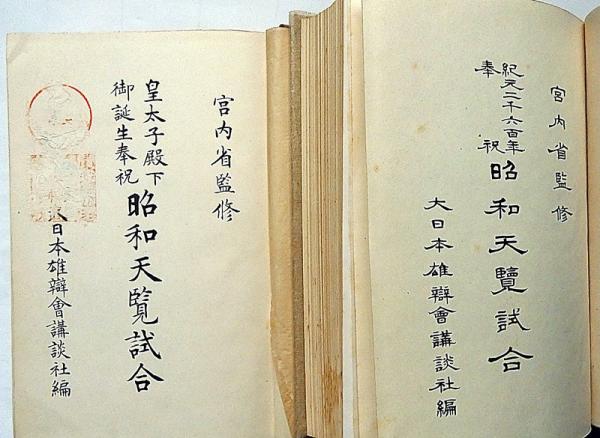 宮内省監修
皇太子殿下
御誕生奉祝
昭和天覧試合
大日本雄辯會講談社編
宮内省監修
紀元二千六百年
奉祝
昭和天覽試合
大日本雄辯會講談社編